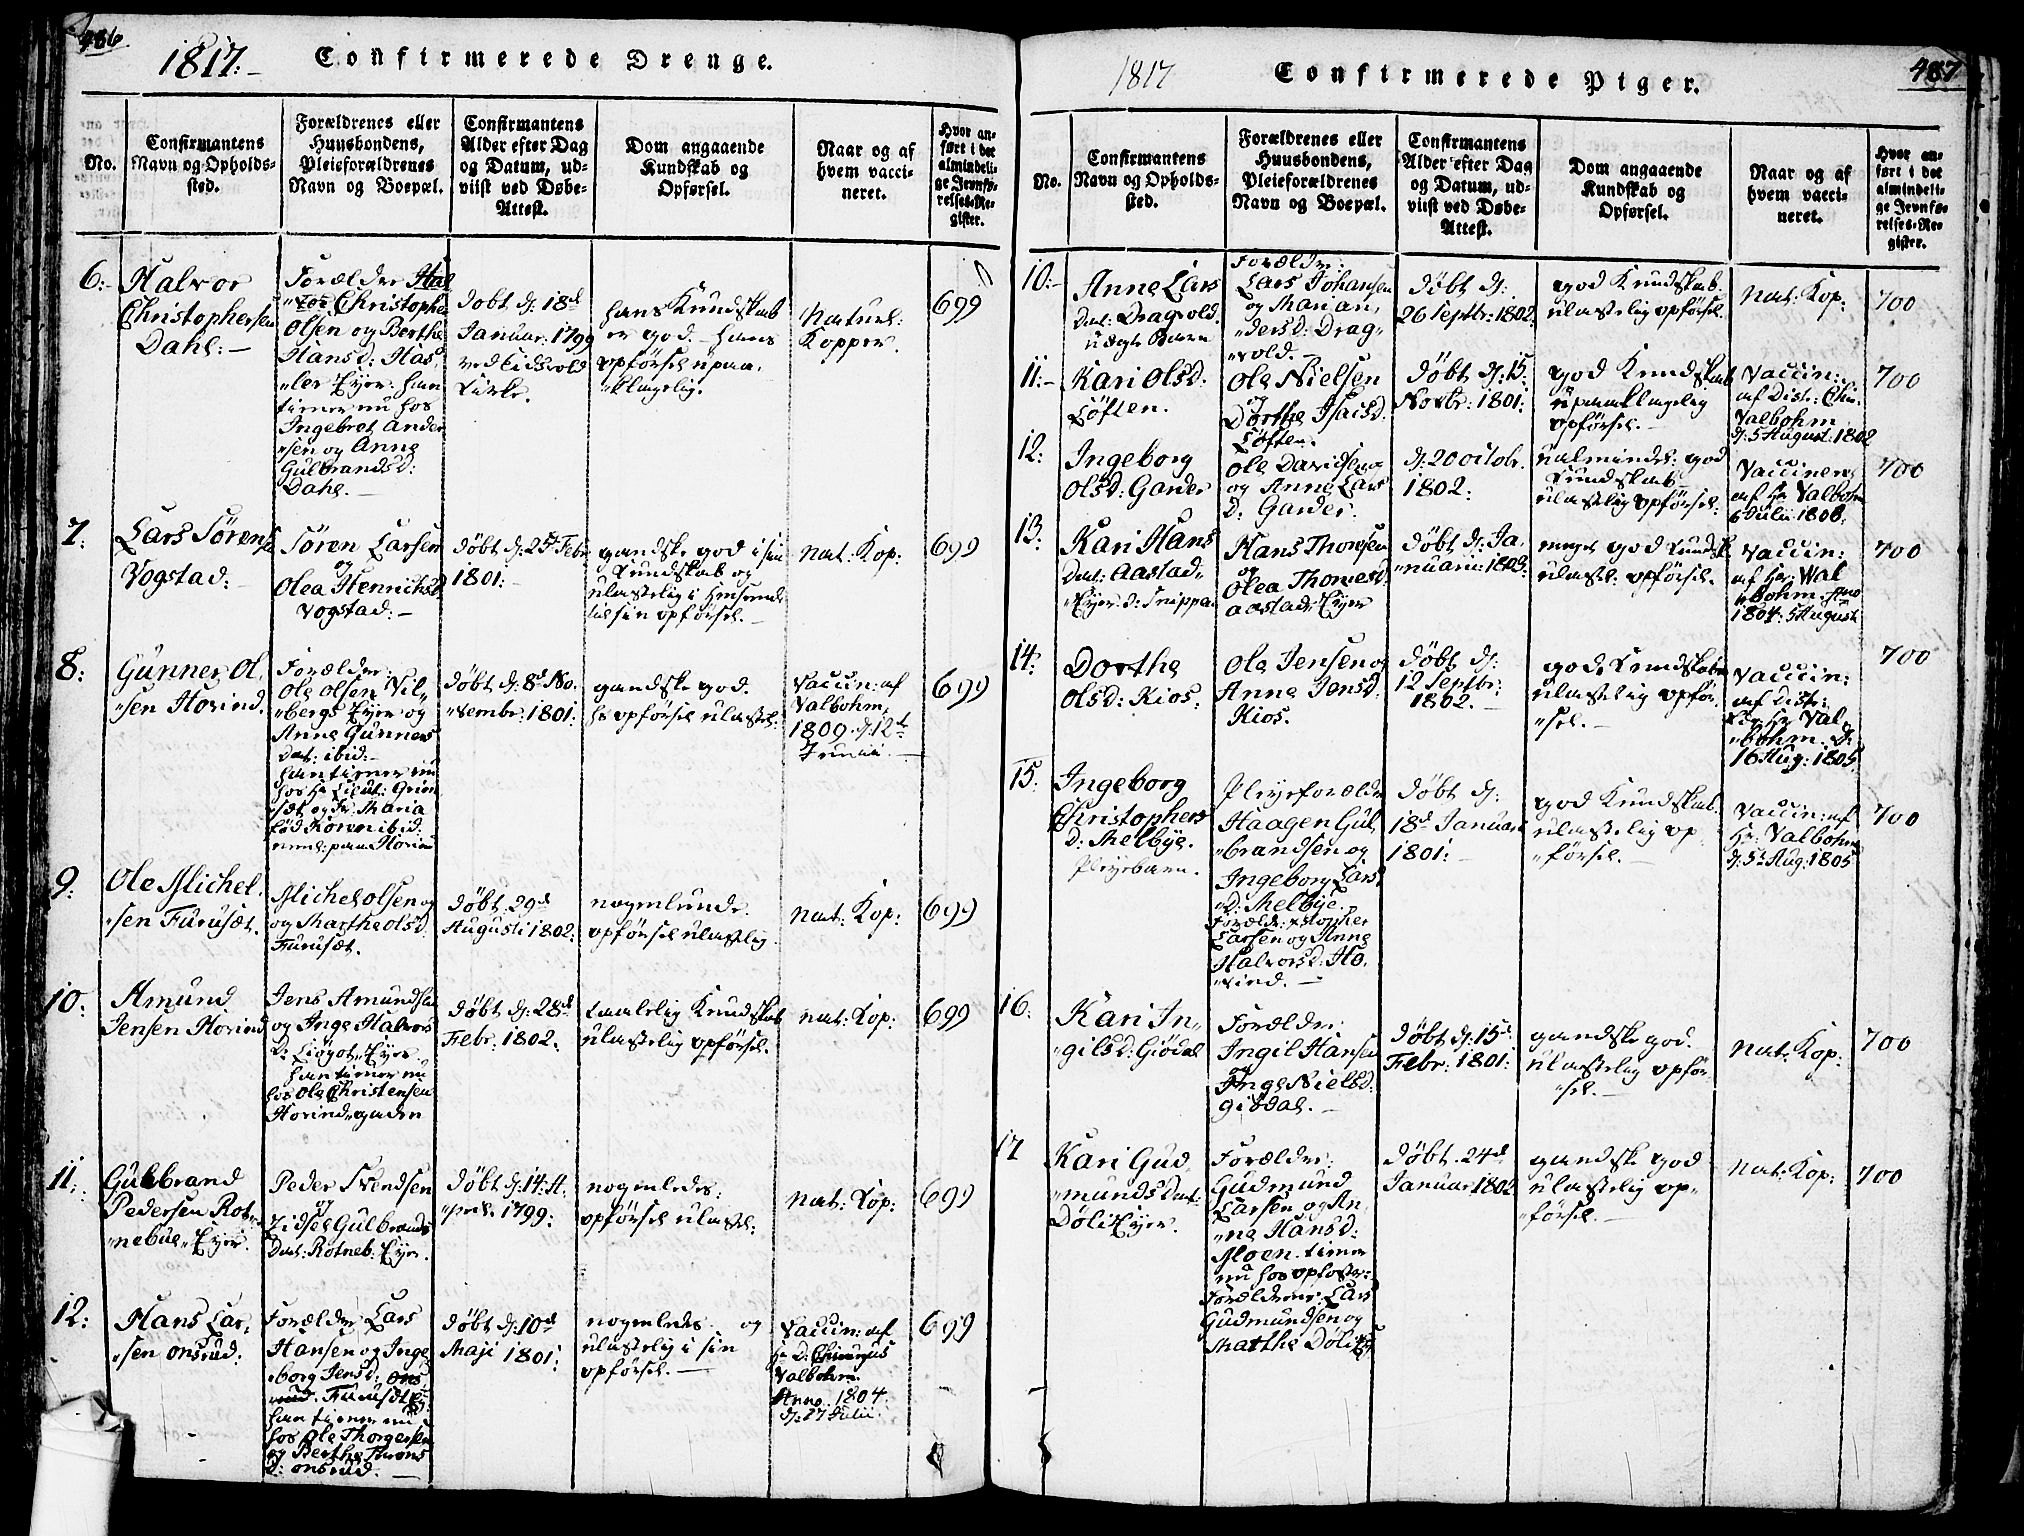 486
1817.
Confirmerede Drenge.
No.
Confirmantens
Navn og Opholds-
sted.
Forældrenes eller
Huusbondens,
Pleieforældrenes
Navn og Boepæl.
Confirmantens
Alder efter Dag
og Datum, ud-
viist ved Døbe-
Attest.
Dom angaaende
Kundskab og
Opførsel.
Naar og af
hvem vacci-
neret.
Hvor an-
ført i det
almindeli-
ge Jevnfø-
relses-Re-
gister.
6.
Halvor
Christophersen
Dahl.
Forælder
Christopher
Olsen og Berthe
Hansd: Has„
„ler Eyer. han
tiener nu hos
Ingebret Ander
„sen og Anne
Gulbrandsd:
Dahl.
Døbt d: 18d
Januar. 1799
ved Eidsvold
Kirke.
hans Kundskab
er god. hans
opførsel upaa„
„klagelig.
Naturl:
Kopper.
699
7.
Lars Sørens
Vogstad.
Søren Larsen
og
Olea Henrichsd
Vogstad.
Døbt d: 25d Febr
1801.
gandske god i sin
Kundskab og
ulastelig i Henseende
til sin opførsel.
nat: Kop:
699
8:
Gunner Ol„
„sen Hovind.
Forælder:
Ole Olsen Vil„
„bergs Eyer og
Anne Gunners
Dat: ibid:
han tiener nu
hos Hr Lieut: Grim
„sæt og Fr. Maria
fød Koren ibid
Døbt d: 8d No„
„vembr: 1801:
gandske god.
opførsel ulastel:
Vaccin: af
Valbohm,
1809. d: 12t
Junii.
699
9.
Ole Michel„
„sen Furusæt.
Michel Olsen og
og Marthe Olsd
Furusæt.
Døbt. 29d
Augusti 1802.
nogenlunde.
opførsel ulastelig
nat: Kop:
699
10.
Amund
Jensen Hovind
Jens Amundsen
og Inge Halvors
D: Eyer.
han tiener nu
hos Ole Christensen
Hovind„gaden
Døbt d: 28d
Febr: 1802.
taalelig Kundskab
ulastelig opførsel.
nat: Kop:
699
11.
Gulbrand
Pedersen Rot„
„nebüe„Eyer.
Peder Svendsen
og
Zidsel Gulbrands
Dat: Rotneb: Eyer.
Døbt d: 14. A„
„pril. 1799:
nogenledes:
opførsel ulastel:
nat: Kop:
699
12:
Hans Lar„
„sen Onsrud:
Forælder Lars
Hansen og Inge
„borg Jensd: Ons
„rud. Furusæt
han tiener nu
hos Ole Thorgersen
og Berthe Throns
D: Onsrud.
Døbt d: 10d
Maji 1801:
nogenledes. og
ulastelig i sin
opførsel.
Vaccin: af
Hr D: Chirurgus
Valbohm.
Anno. 1804.
d: 17 Julii.
699
487
1817
Confirmerede Piger.
No.
Confirmantens
Navn og Opholds-
sted.
Forældrenes eller
Huusbondens,
Pleieforældrenes
Navn og Boepæl.
Confirmantens
Alder efter Dag
og Datum, ud-
viist ved Døbe-
Attest.
Dom angaaende
Kundskab og
Opførsel.
Naar og af
hvem vacci-
neret.
Hvor an-
ført i det
almindeli-
ge Jevnfø-
relses-Re-
gister.
10.
Anne Lars
Dat: Dragvold.
uægte Barn
Forælder:
Lars Johansen
og Marian„
„dersd: Drag„
„vold.
Døbt d:
26 Septbr: 1802.
god Kundskab.
ulastelig opførsel
nat: Kop:
700
11.
Kari Olsd:
Løften.
Ole Nielsen
og
Dorthe Isaisd.
Løften.
Døbt d: 15.
Novbr: 1801:
god Kundskab
upaaklagelig
opførsel.
Vaccin:
af Distr: Chir.
Valbohm
d: 5 August: 1802
700
12:
Ingeborg
Olsd: Garder
Ole Davidsen
og Anne Lars
D: Garder.
d: 20 Octobr.
1802:
ualmindel: god
Kundskab
ulastelig opførsel:
Vaccineret
af Hr Valbohm
6 Julii 1808.
700
13.
Kari Hans
Dat: Aastad„
„Eyer. d: Snippa
Hans Thoresen
og
Olea Thoresd:
Aastad: Eyer
Døbt d: Ja„
„nuarii: 1803.
meget god Kundsk
ulastel: opførsel.
Vaccin:
af Hr: Wal
„bohm. Ano
1804: 5 August
700
14:
Dorthe
Olsd: Kios.
Ole Jensen og
Anne Jensd:
Kios.
Døbt d:
12 Septbr:
1802.
god. Kundskab
ulastelig opfør„
„sel.
Vaccin:
af Distr:
Chir. Hr Val„
„bohm. D:
16 Aug: 1805.
700
15.
Ingeborg
Christophers
D: Melbye.
Pleyebarn.
Pleyeforælder
Haagen Gul„
„brandsen og
Ingeborg Lars
D: Melbye.
Foræld: Xstopher
Larsen og Anne
Halvorsd: Ho„
„vind.
Døbt d:
18d Januar
1801:
god Kundskab.
ulastelig op„
„førsel.
Vaccin: af
Hr: Valbohm
d: 5t Aug: 1805
700
16.
Kari In„
„gilsd: Giødal
Forælder:
Ingil Hansen
og
Inge Nielsd:
Giødal.
Døbt d: 15d
Febr: 1801:
gandske god.
ulastelig opfør„
„sel.
nat: Kop:
700
17
Kari Gud„
„munds Dat:
Døli Eyer.
Forælder:
Gudmund
Larsen og An„
„ne Hansd:
Moen. tiener
nu hos opfoster„
Forælderne: Lars
Gudmundsen og
Marthe Døli
Døbt. 24d
Januar 1802
gandske god
ulastelig op„
„førsel.
nat: Kop:
700